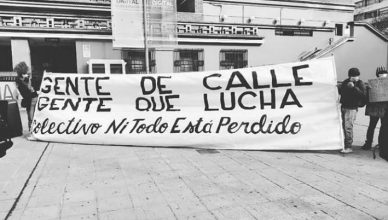 GENTE DE CALLE
GENTE QUE LUCHA
Colectivo Ni Todo Está Perdido